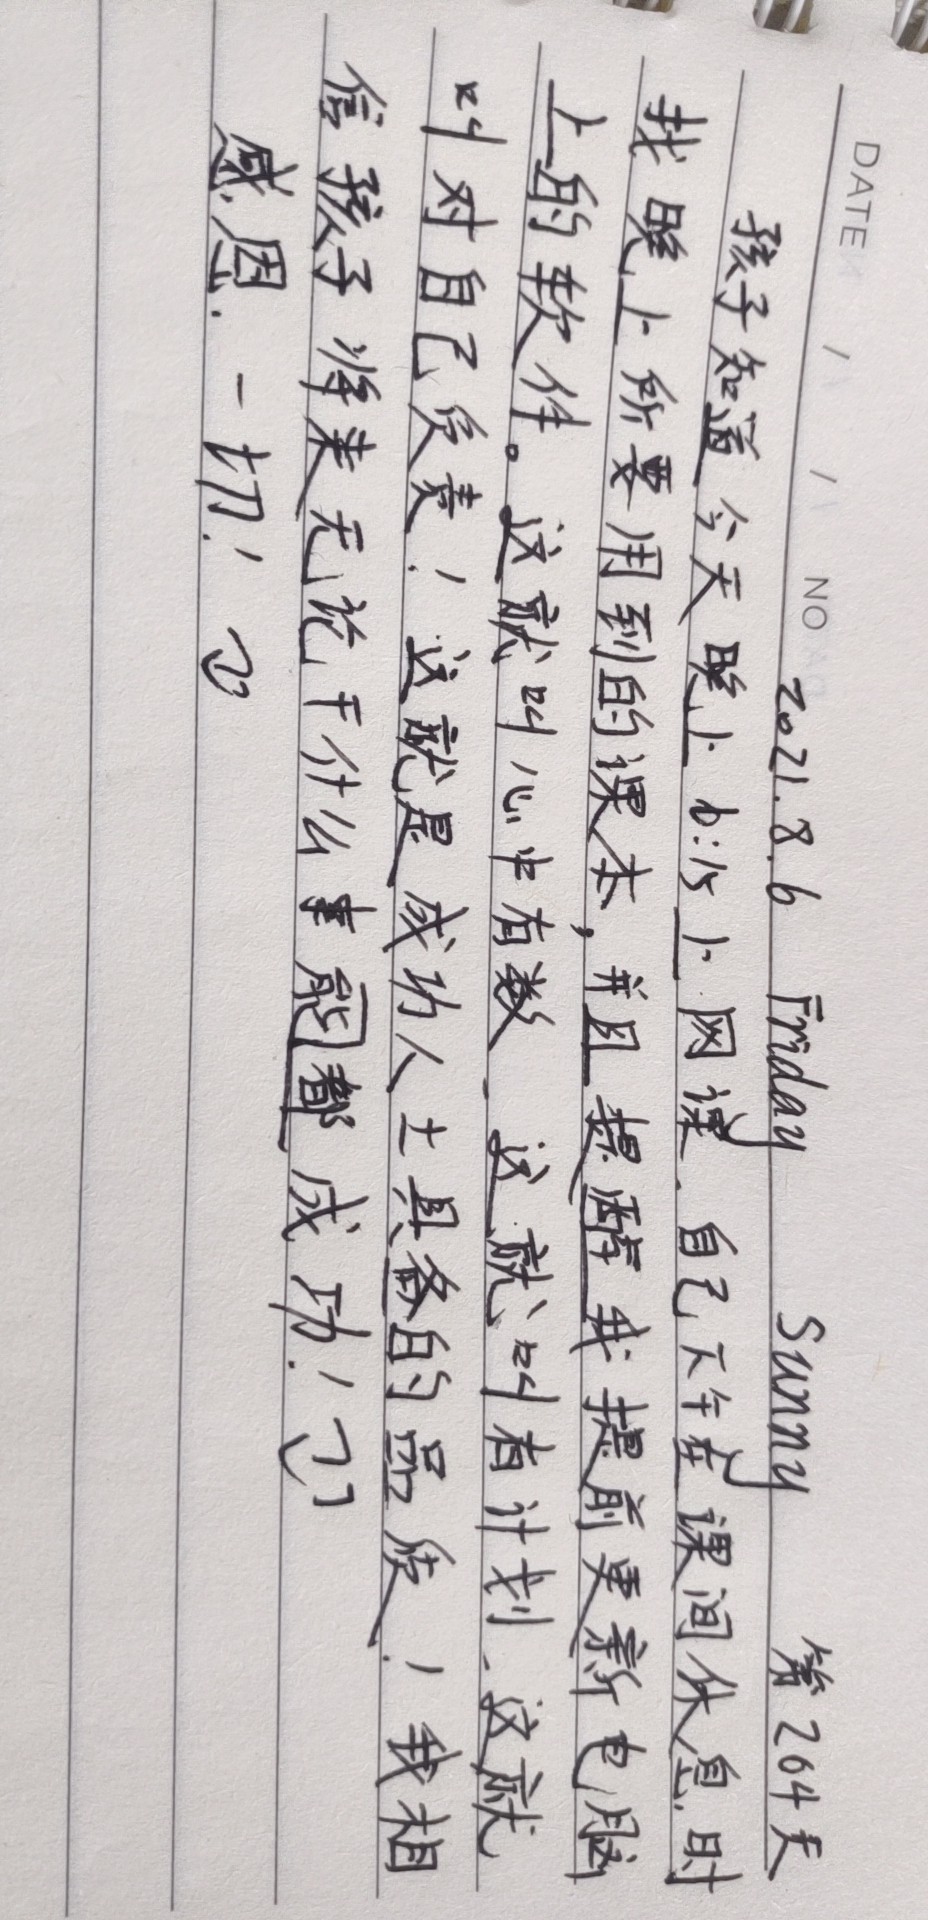 DATE / / NO
2021.8.6 Friday Sunny 第264天
孩子知道今天晚上6:15上网课.自己下午在课间休息时
找晚上所要用到的课本,并且提醒我提前更新电脑
上的软件。这就叫心中有数.这就叫有计划.这就
叫对自己负责!这就是成功人士具备的品质!我相
信孩子将来无论干什么事能都成功!
感恩.一切!